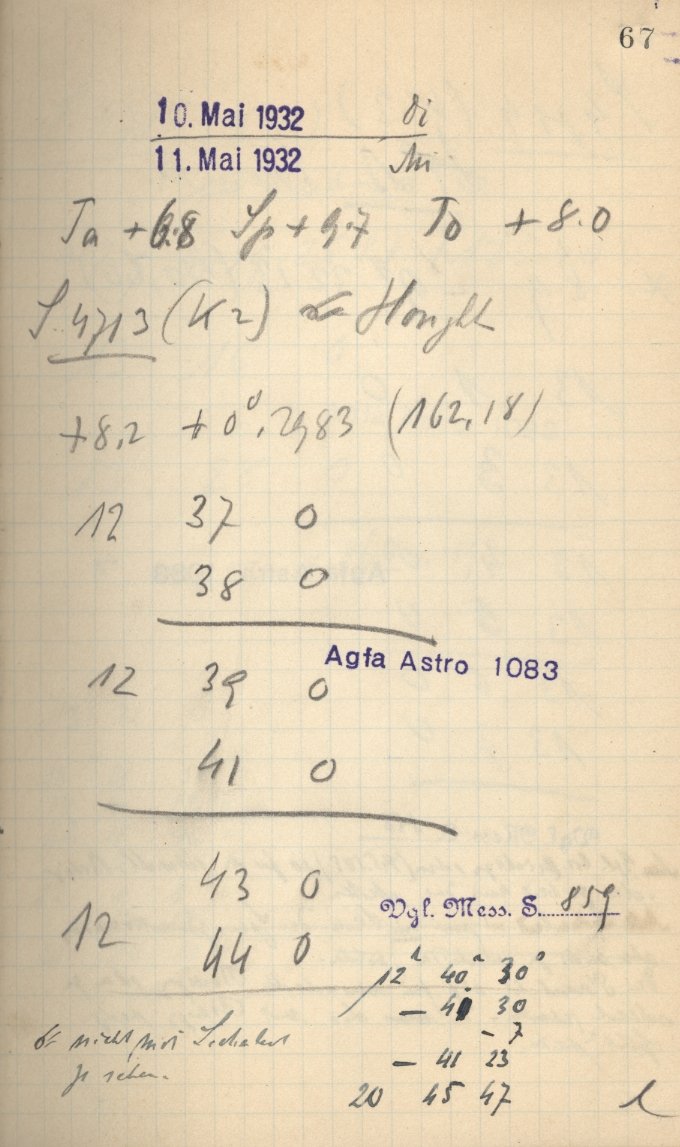 67
10. Mai 1932 Di
11. Mai 1932 Mi
Ta +6.8 Sp +9.7 To +8.0
S 4713 (K2)
+8.2 +0°.2983 (162,18)
12 37 0
38 0
Agfa Astro 1083
12 39 0
41 0
43 0
Vgl. Mess. S. 859
12 44 0
12 40 30
– 41 30
– 7
nicht
– 41 23
zu sehen.
20 45 47